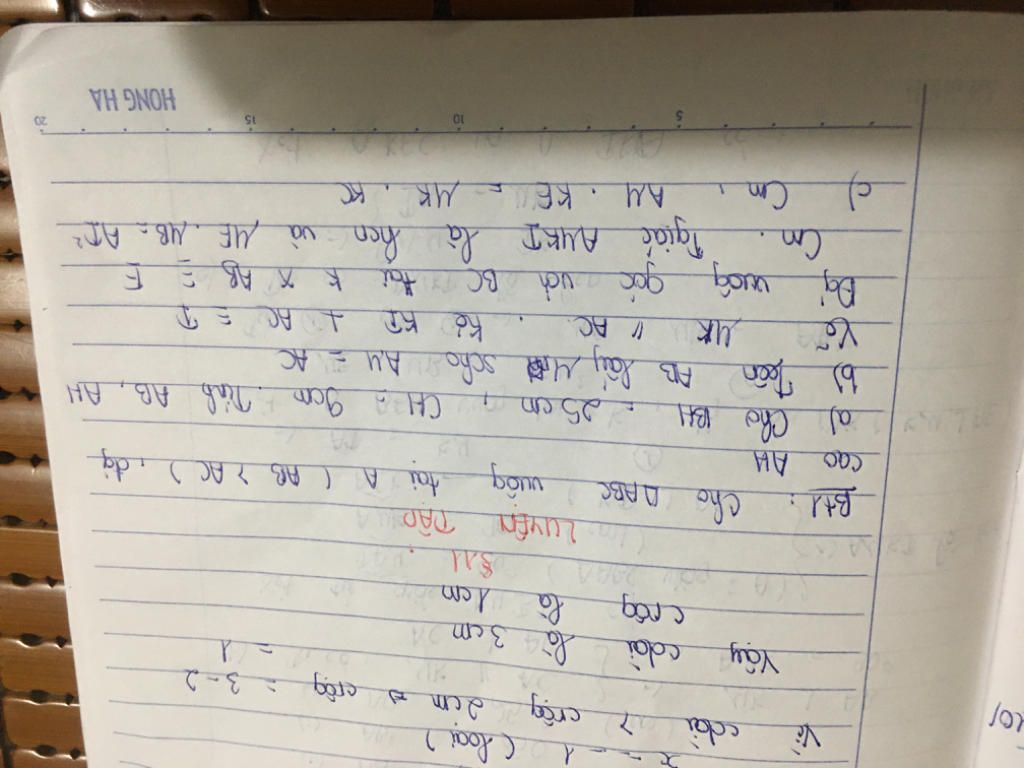 x = -1 (loại)
Vì cdài > crộg 2cm => crộg = 3-2
= 1
Vậy cdài là 3cm
crộg là 1cm
§11
LUYỆN TẬP
Bt1: Cho ΔABC vuôg tại A (AB > AC), đg
cao AH
a) Cho BH = 25cm, CH = 9cm. Tính AB, AH
b) Trên AB lấy M scho AM = AC
Vẽ MK // AC. Kẻ KI ⊥ AC = I
Đg vuôg góc với BC tại K x AB = E
Cm. Tgiác AMKI là hcn và ME. MB = AI²
c) Cm. AM. KE = MK. KC
5 10 15 20
HONG HA